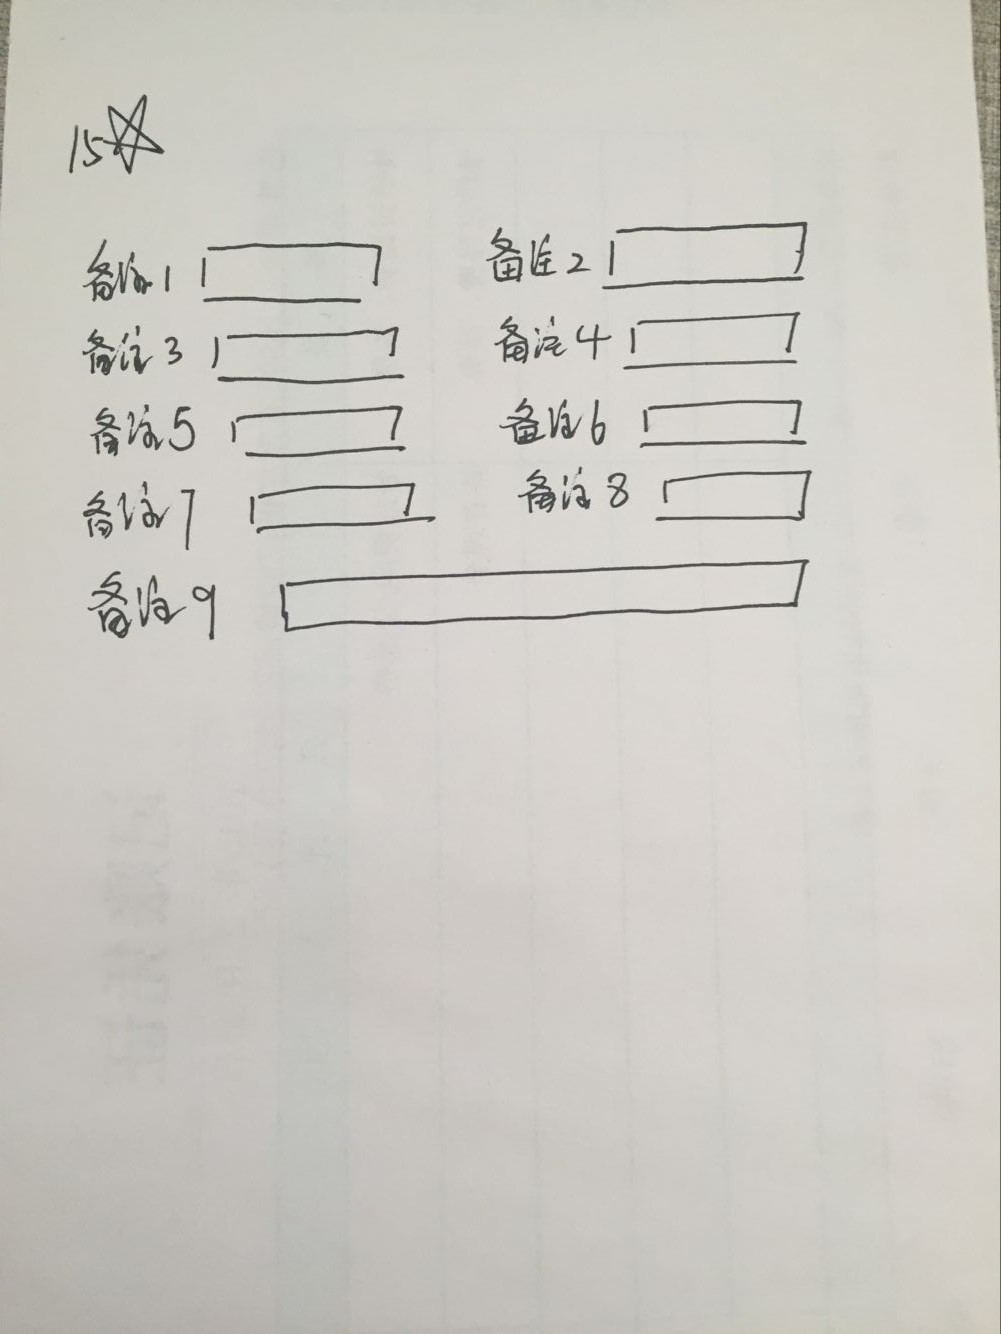 15
备注1 备注2
备注3 备注4
备注5 备注6
备注7 备注8
备注9